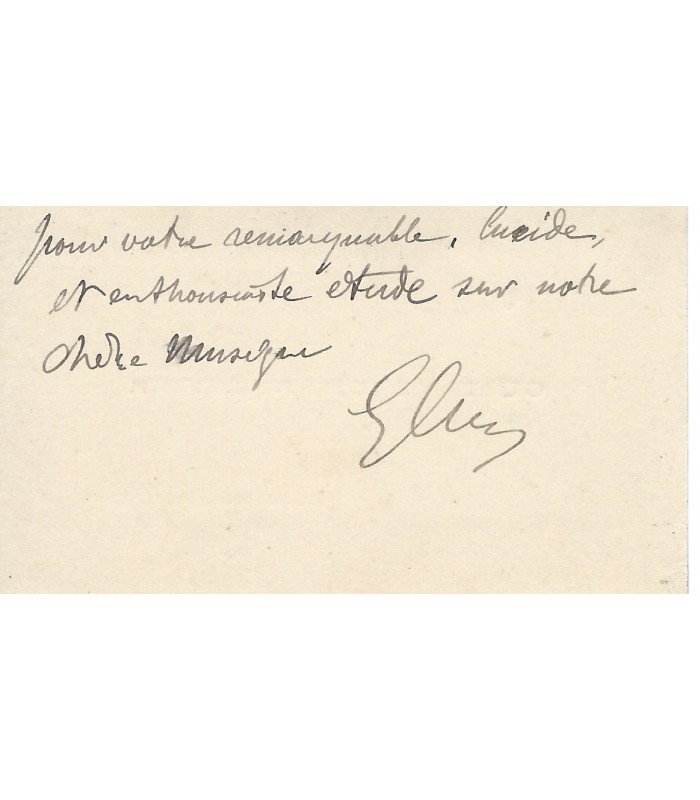 pour votre remarquable, lucide,
et enthousiaste etude sur notre
chère Musique